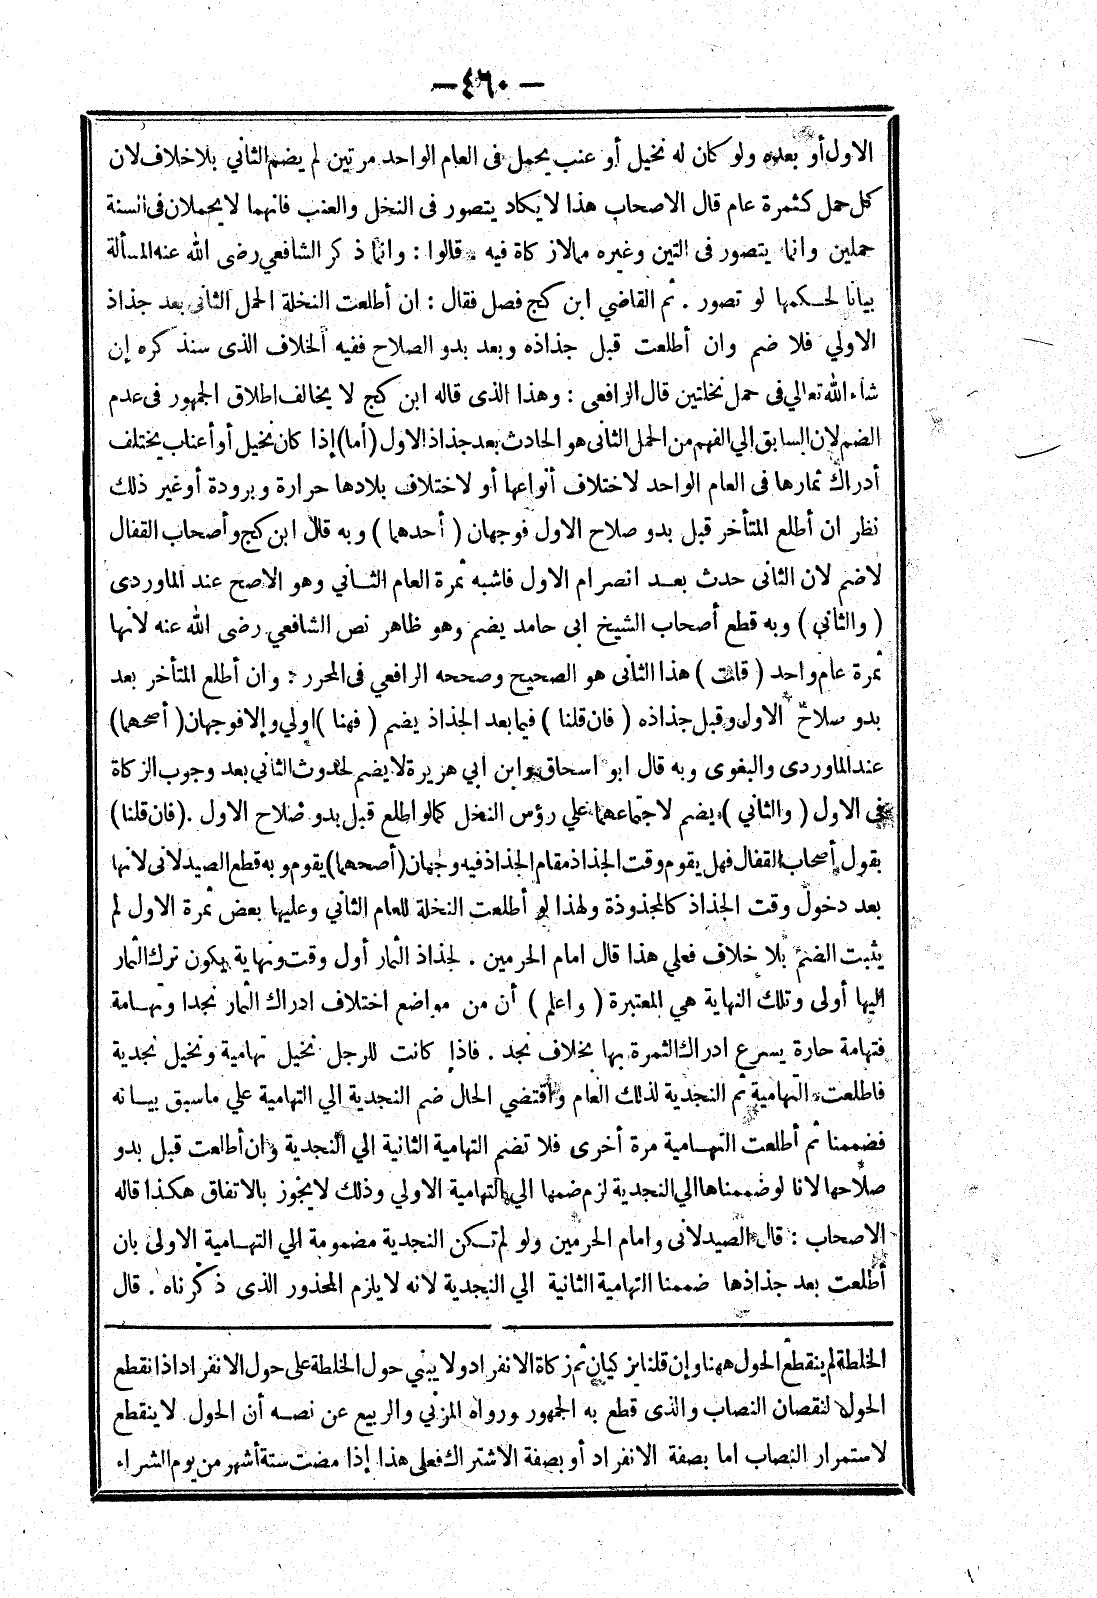 — ٤٦٠ —
الاول أو بعده ولو كان له نخيل أو عنب يحمل فى العام الواحد مرتين لم يضم الثاني بلا خلاف لان
كل حمل كثمرة عام قال الاصحاب هذا لا يكاد يتصور فى النخل والعنب فانهما لا يحملان فى السنة
حملين وانما يتصور فى التين وغيره مما لا زكاة فيه . قالوا : وانما ذكر الشافعي رضى الله عنه المسألة
بيانا لحكمها لو تصور . ثم القاضي ابن كج فصل فقال : ان أطلعت النخلة الحمل الثانى بعد جذاذ
الاولي فلا ضم وان أطلعت قبل جذاذه وبعد بدو الصلاح ففيه الخلاف الذى سنذكره إن
شاء الله تعالي فى حمل نخلتين قال الرافعى : وهذا الذى قاله ابن كج لا يخالف اطلاق الجمهور فى عدم
الضم لان السابق الي الفهم من الحمل الثانى هو الحادث بعد جذاذ الاول (أما) إذا كان نخيل أو أعناب يختلف
أدراك ثمارها فى العام الواحد لاختلاف أنواعها أو لاختلاف بلادها حرارة وبرودة أو غير ذلك
نظر ان أطلع المتأخر قبل بدو صلاح الاول فوجهان ( أحدهما ) وبه قال ابن كج وأصحاب القفال
لا ضم لان الثانى حدث بعد انصرام الاول فاشبه ثمرة العام الثاني وهو الاصح عند الماوردى
( والثاني ) وبه قطع أصحاب الشيخ ابى حامد يضم وهو ظاهر نص الشافعي رضى الله عنه لانها
ثمرة عام واحد ( قلت ) هذا الثانى هو الصحيح وصححه الرافعي فى المحرر : وان أطلع المتأخر بعد
بدو صلاح الاول وقبل جذاذه ( فان قلنا ) فيما بعد الجذاذ يضم ( فهنا ) اولي والا فوجهان ( أصحهما )
عند الماوردى والبغوى وبه قال ابو اسحاق وابن ابي هريرة لا يضم لحدوث الثاني بعد وجوب الزكاة
فى الاول ( والثاني ) يضم لاجتماعهما علي رؤس النخل كما لو اطلع قبل بدو صلاح الاول . (فان قلنا)
بقول أصحاب القفال فهل يقوم وقت الجذاذ مقام الجذاذ فيه وجهان (أصحهما) يقوم وبه قطع الصيدلانى لانها
بعد دخول وقت الجذاذ كالمجذوذة ولهذا لو أطلعت النخلة للعام الثاني وعليها بعض ثمرة الاول لم
يثبت الضم بلا خلاف فعلي هذا قال امام الحرمين . لجذاذ الثمار أول وقت ونهاية يكون ترك الثمار
اليها أولى وتلك النهاية هي المعتبرة ( واعلم ) أن من مواضع اختلاف ادراك الثمار نجدا وتهامة
فتهامة حارة يسرع ادراك الثمرة بها بخلاف نجد . فاذا كانت للرجل نخيل تهامية ونخيل نجدية
فاطلعت التهامية ثم النجدية لذلك العام واقتضي الحال ضم النجدية الي التهامية علي ما سبق بيانه
فضممنا ثم أطلعت التهامية مرة أخرى فلا تضم التهامية الثانية الي النجدية وان أطلعت قبل بدو
صلاحها لانا لو ضممناها الي النجدية لزم ضمها الي التهامية الاولي وذلك لا يجوز بالاتفاق هكذا قاله
الاصحاب : قال الصيدلانى وامام الحرمين ولو لم تكن النجدية مضمومة الي التهامية الاولى بان
أطلعت بعد جذاذها ضممنا التهامية الثانية الي النجدية لانه لا يلزم المحذور الذى ذكرناه . قال
الخلطة لم ينقطع الحول ههنا وإن قلنا يزكيان ثم زكاة الانفراد ولا يبني حول الخلطة على حول الانفراد اذا نقطع
الحول لنقصان النصاب والذى قطع به الجمهور ورواه المزني والربيع عن نصه أن الحول لا ينقطع
لاستمرار النصاب اما بصفة الانفراد أو بصفة الاشتراك فعلى هذا إذا مضت ستة أشهر من يوم الشراء